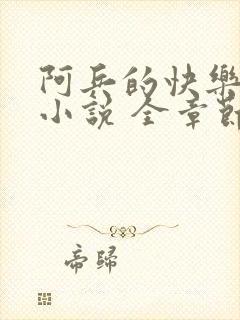 阿兵的快樂
小說 全章節
帝歸